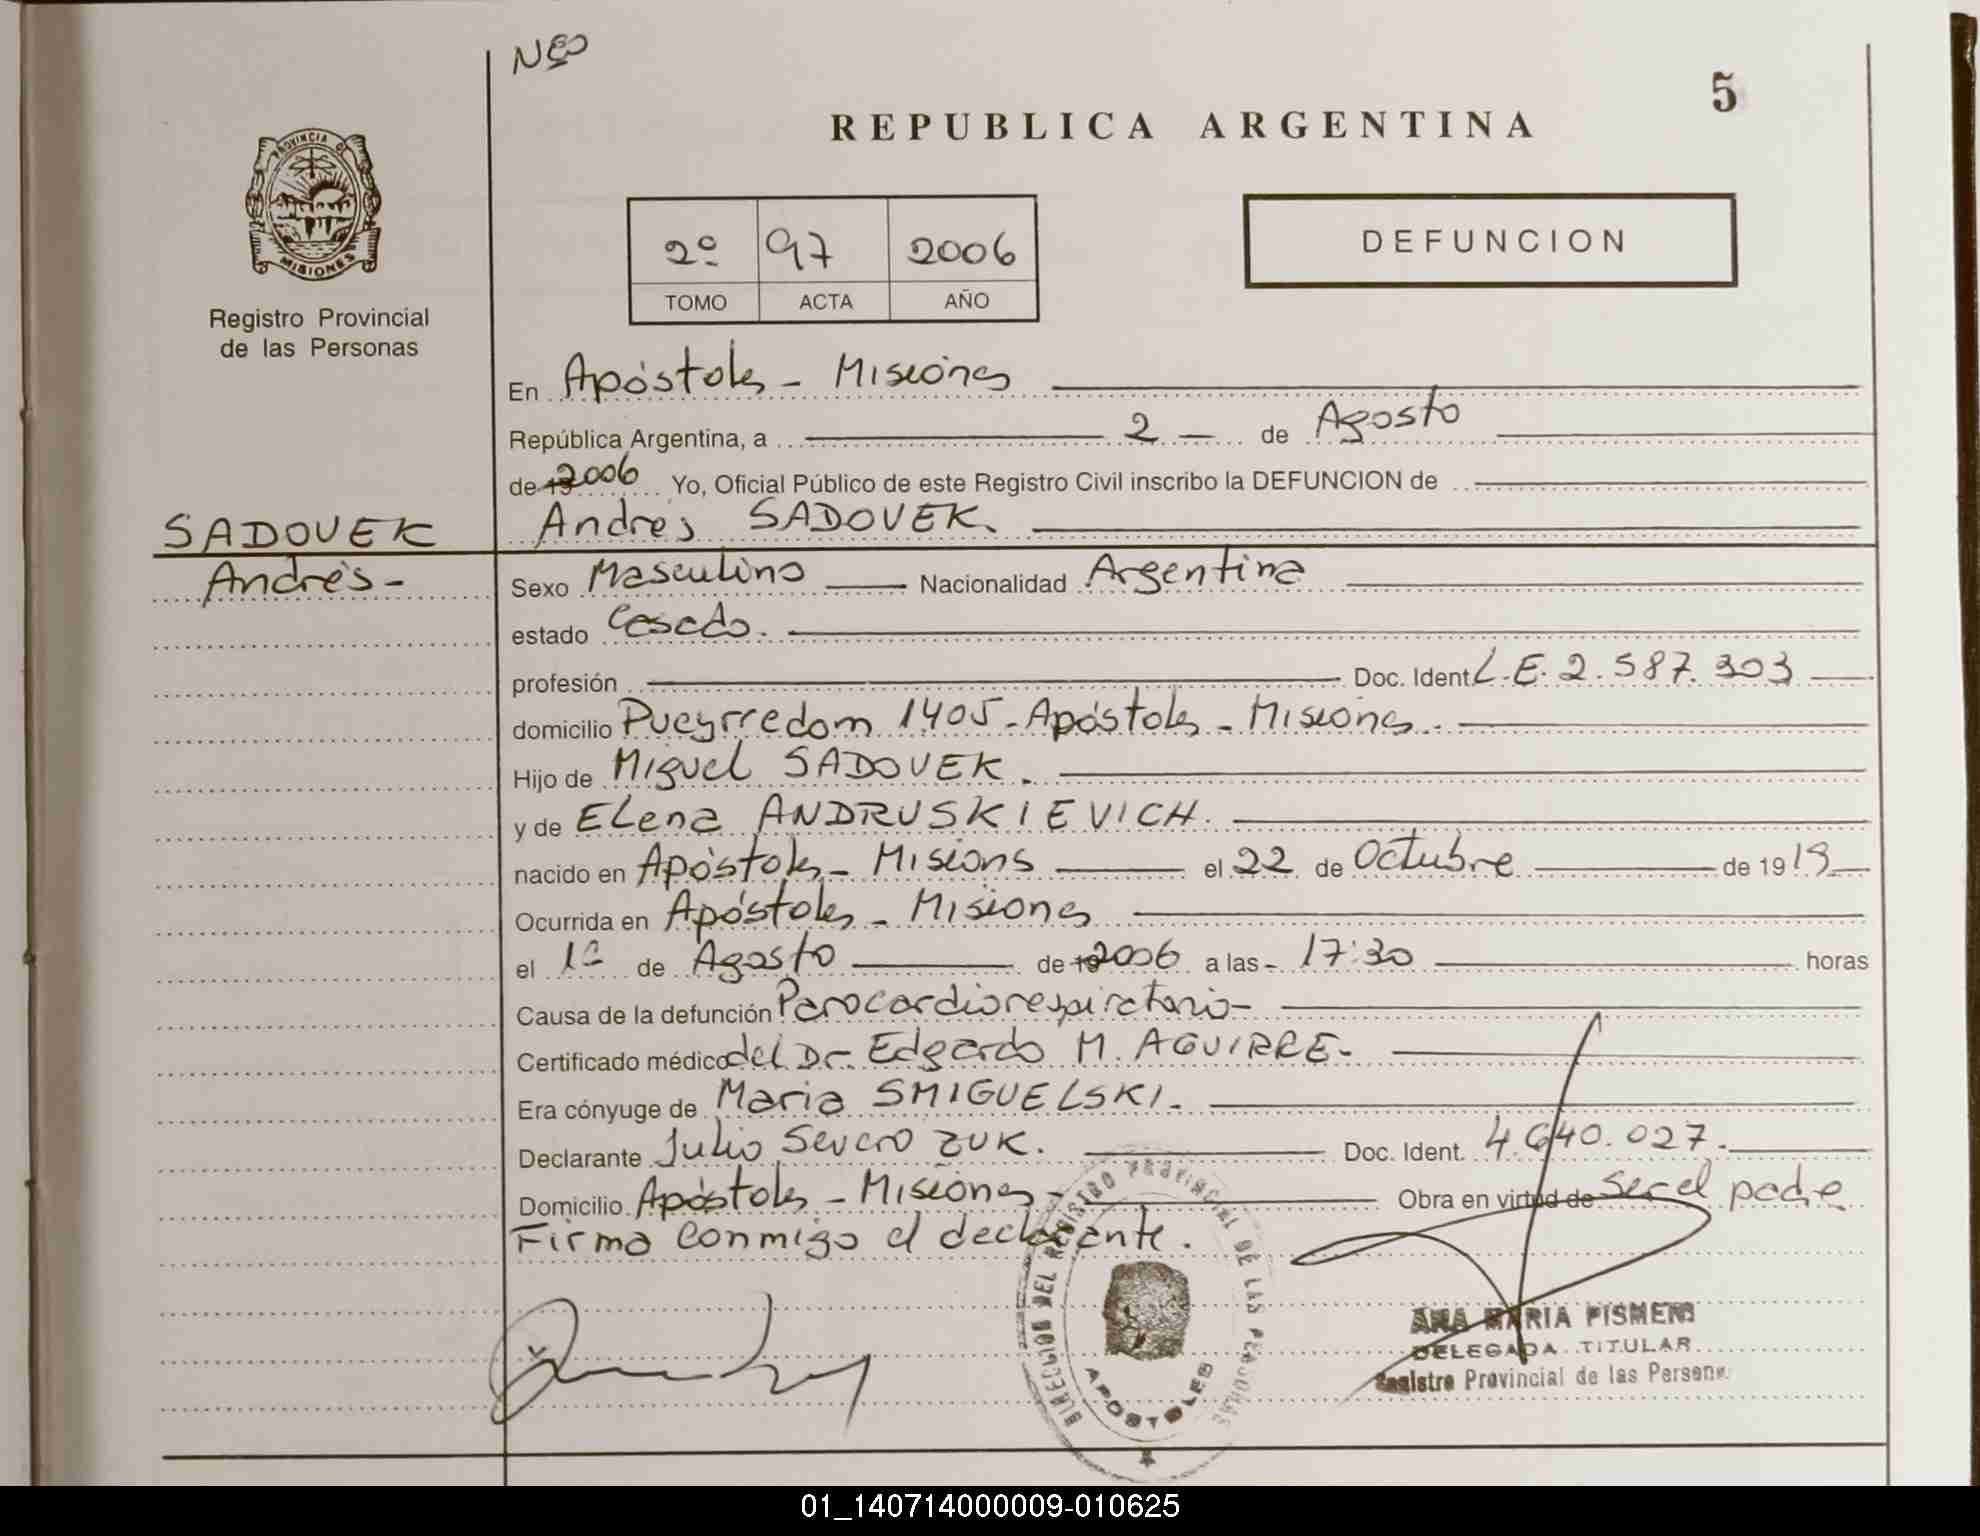 NEO
5
REPUBLICA ARGENTINA
PROVINCIA DE MISIONES
Registro Provincial
de las Personas
2º 97 2006
TOMO ACTA AÑO
DEFUNCION
En Apóstoles - Misiones
República Argentina, a 2 - de Agosto
de 2006 Yo, Oficial Público de este Registro Civil inscribo la DEFUNCION de
SADOVEK Andrés SADOVEK.
Andrés - Sexo Masculino Nacionalidad Argentina
estado Casado.
profesión Doc. Ident L.E. 2.587.303
domicilio Pueyrredom 1405 - Apóstoles - Misiones.
Hijo de Miguel SADOVEK.
y de Elena ANDRUSKIEVICH.
nacido en Apóstoles - Misions el 22 de Octubre de 1919
Ocurrida en Apóstoles - Misiones
el 1º de Agosto de 2006 a las - 17:30 horas
Causa de la defunción Parocardiorespiratorio -
Certificado médico del Dr. Edgardo M. AGUIRRE -
Era cónyuge de Maria SMIGUELSKI -
Declarante Julio Severo ZUK. Doc. Ident. 4.640.027.
Domicilio Apóstoles - Misiones - Obra en virtud de ser el padre
Firma conmigo el declarante.
DIRECCION DEL REGISTRO PROVINCIAL DE LAS PERSONAS
APOSTOLES
ANA MARIA PISMENI
DELEGADA TITULAR
Registro Provincial de las Persona
01_140714000009-010625